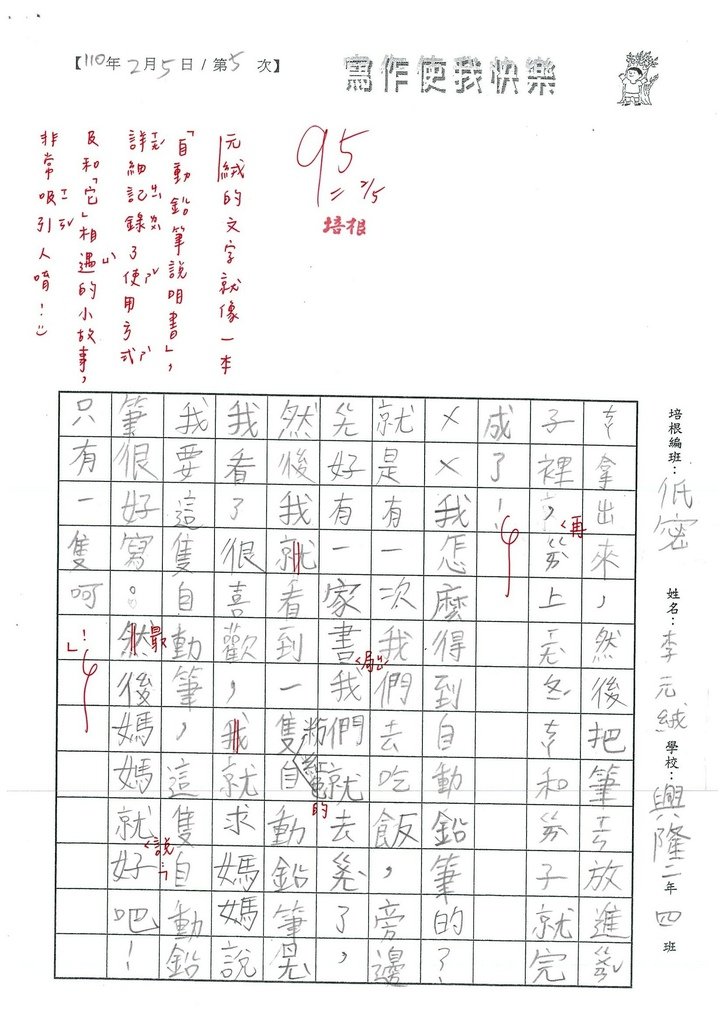 【110年2月5日/第5次】
寫作使我快樂
培根編班：低密 姓名：李元絨 學校：興隆二年四班
拿出來，然後把筆放進
子裡，再上和子就完
成了！
××我怎麼得到自動鉛筆的？
就是有一次我們去吃飯，旁邊
好有一家書局我們就去了，
然後我就看到一隻粉紅色的自動鉛筆
我看了很喜歡，我就求媽媽說
我要這隻自動筆，這隻自動鉛
筆很好寫。然最後媽媽就說「好吧！
只有一隻呵！」
95
2/5
培根
元絨的文字就像一本
「自動鉛筆說明書」，
詳細記錄了使用方式
及和「它」相遇的小故事，
非常吸引人唷！